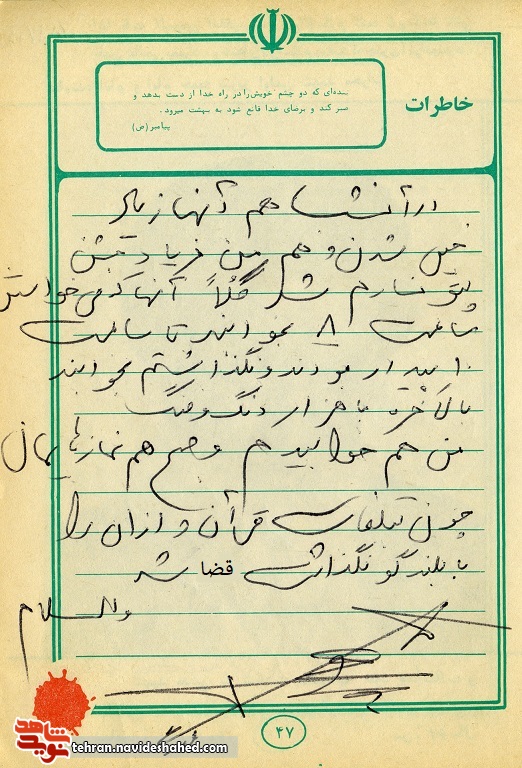 خاطرات
بنده‌ای که دو چشم خویش را در راه خدا از دست بدهد و
صبر کند و برضای خدا قانع شود به بهشت میرود.
پیامبر (ص)
در آنشب هم آنها زیاد
شدن و هم من زیاد
شد مثلاً آنها که می خواستن
ساعت ۸ بخوابند تا ساعت
۱۰ بیدار بودند و نگذاشتم بخوابند
بالاخره با هزار دنگ و فنگ
من هم خوابیدم و صبح هم نمازهایمان
چون تبلیغات قرآن و اذان را
با بلندگو نگذاشت قضا شد
والسلام
۴۷
نوید شاهد
tehran.navideshahed.com